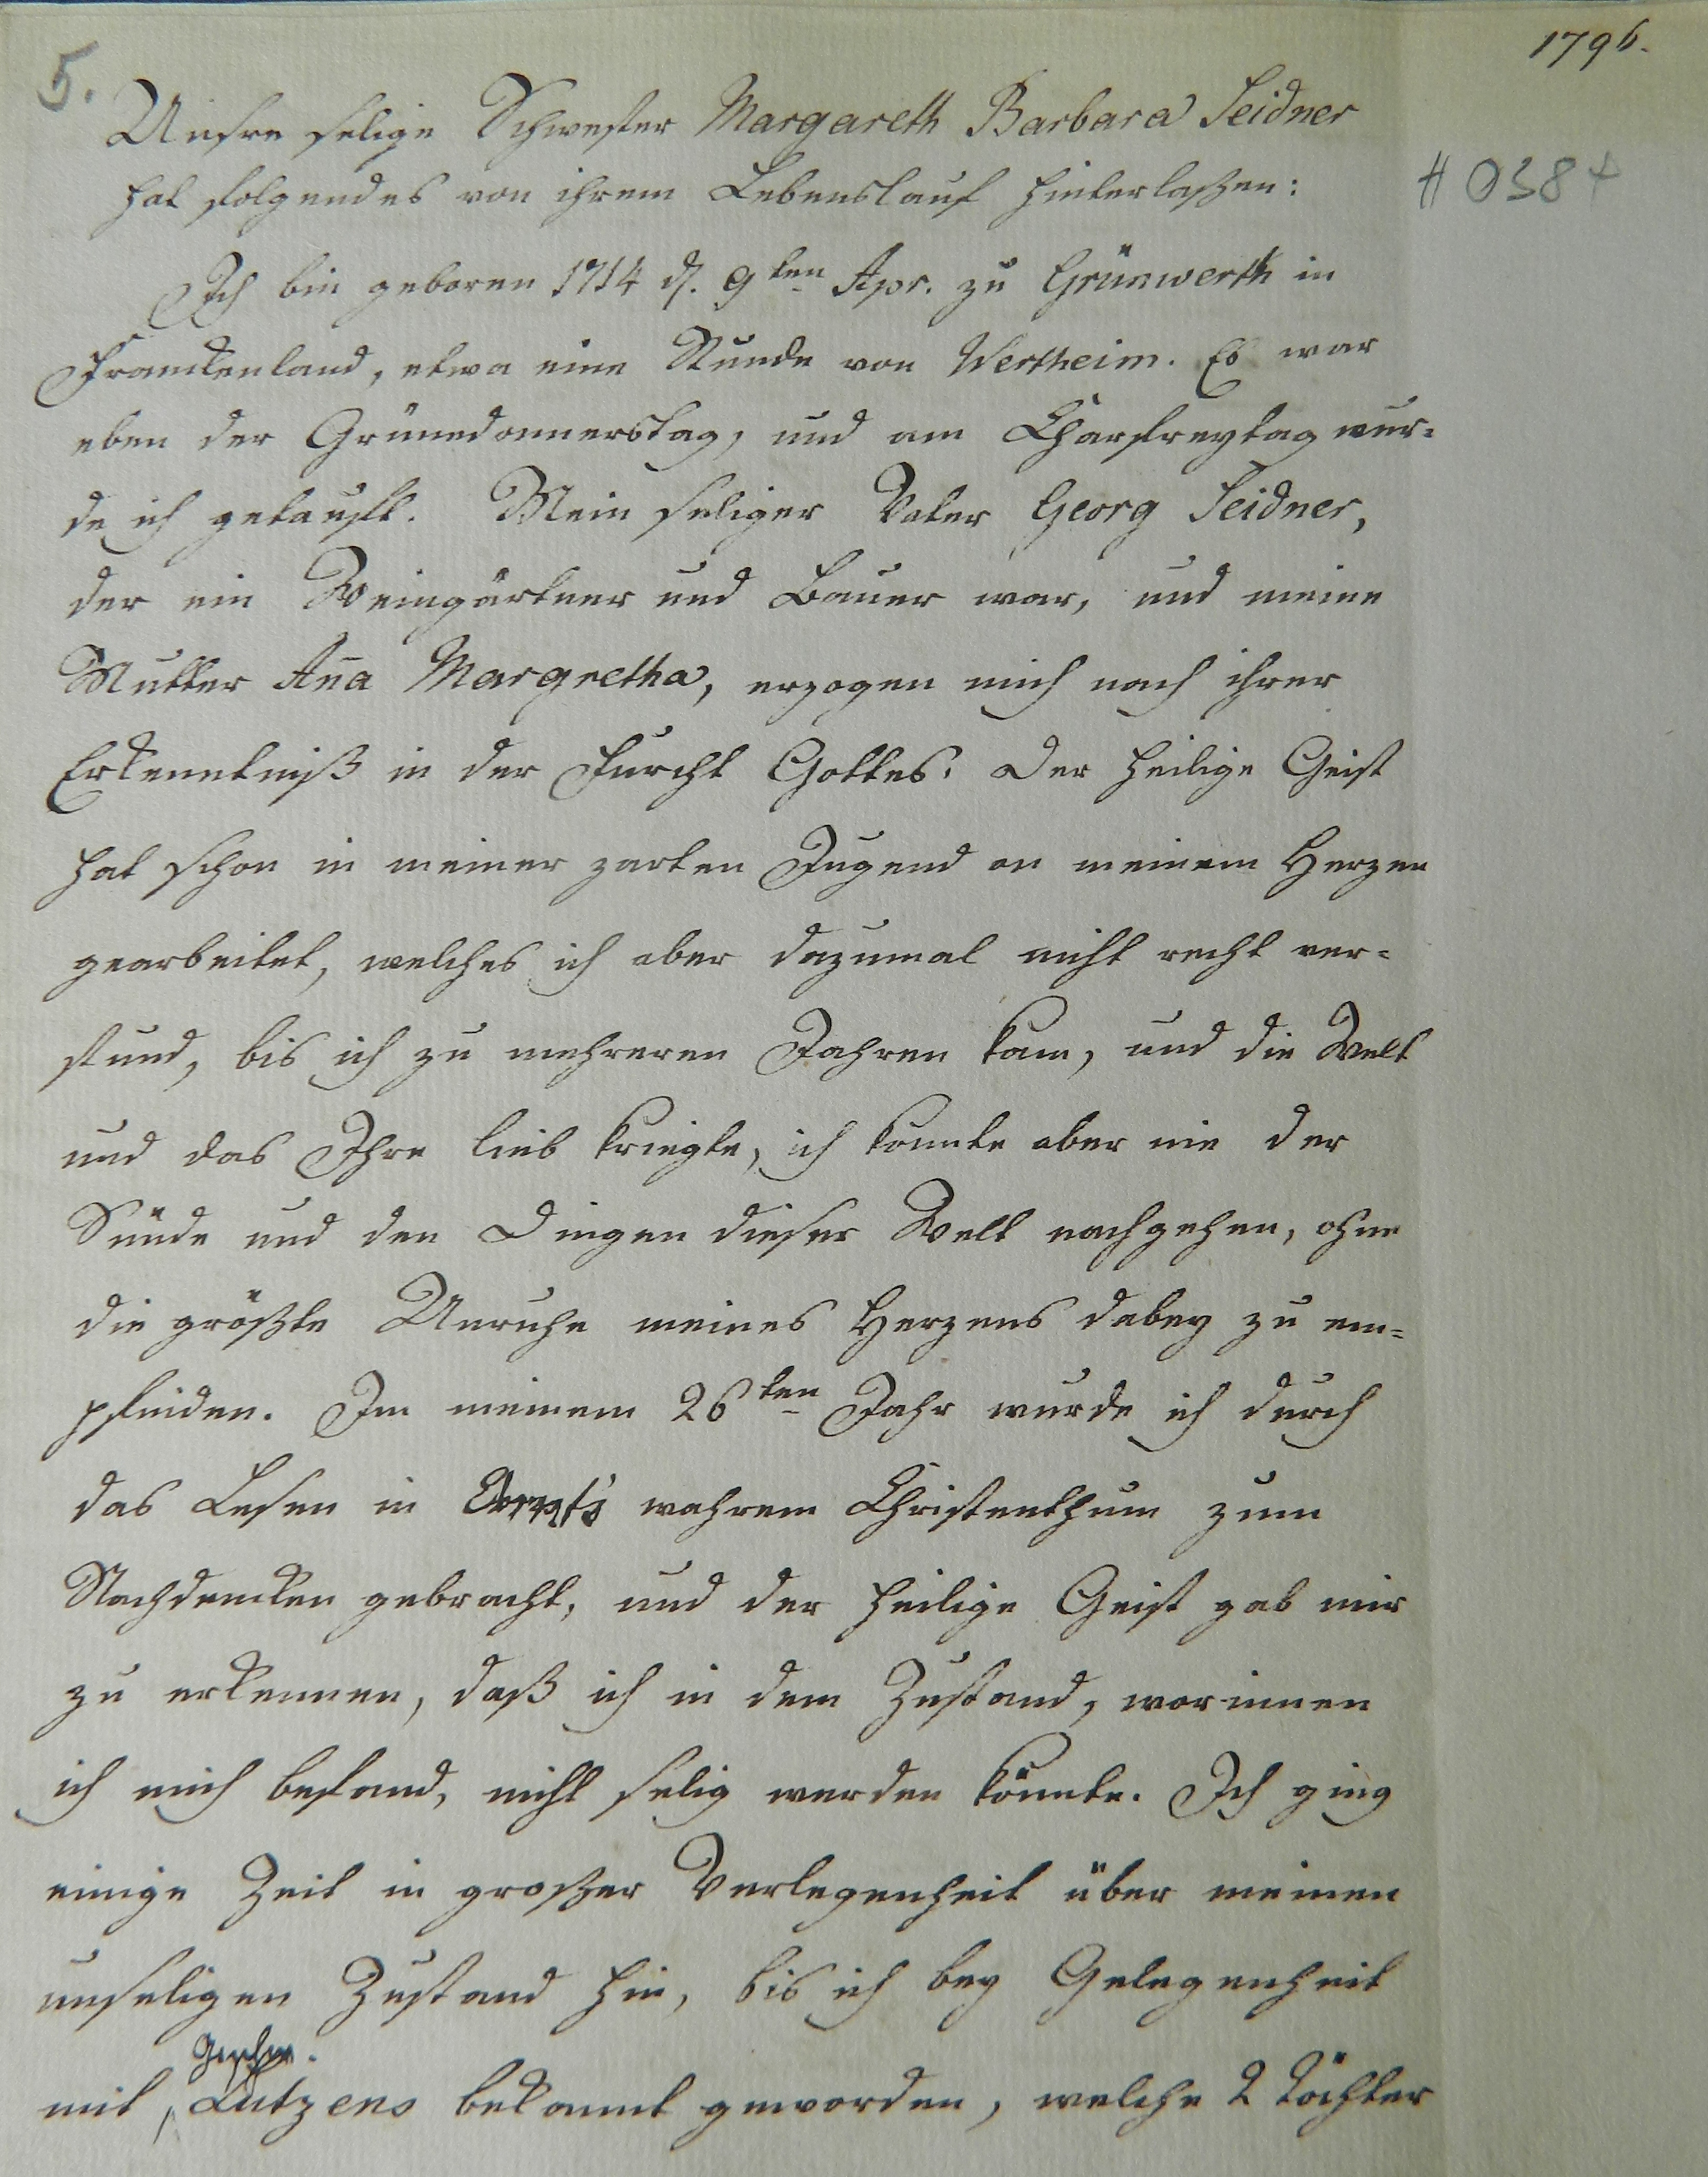 1796.
5.
Unsre selige Schwester Margareth Barbara Seidner
# 0384
hat folgendes von ihrem Lebenslauf hinterlaßen:
Ich bin geboren 1714 d. 9ten Apr. zu Grünwerth in
Franckenland, etwa eine Stunde von Wertheim. Es war
eben der Grünedonnerstag, und am Charfreytag wur-
de ich getauft. Mein seliger Vater Georg Seidner,
der ein Weingärtner und Bauer war, und meine
Mutter Aña Margretha, erzogen mich nach ihrer
Erkenntniß in der Furcht Gottes. Der heilige Geist
hat schon in meiner zarten Jugend an meinem Herzen
gearbeitet, welches ich aber dazumal nicht recht ver-
stund, bis ich zu mehreren Jahren kam, und die Welt
und das Ihre lieb kriegte, ich konnte aber nie der
Sünde und den Dingen dieser Welt nachgehen, ohne
die größte Unruhe meines Herzens dabey zu em-
pfinden. Im meinem 26ten Jahr wurde ich durch
das Lesen in Arndt's wahrem Christenthum zum
Nachdencken gebracht, und der heilige Geist gab mir
zu erkennen, daß ich in dem Zustand, worinnen
ich mich befand, nicht selig werden könnte. Ich ging
einige Zeit in großer Verlegenheit über meinen
unseligen Zustand hin, bis ich bey Gelegenheit
mit Geschw. Lutzens bekannt geworden, welche 2 Töchter